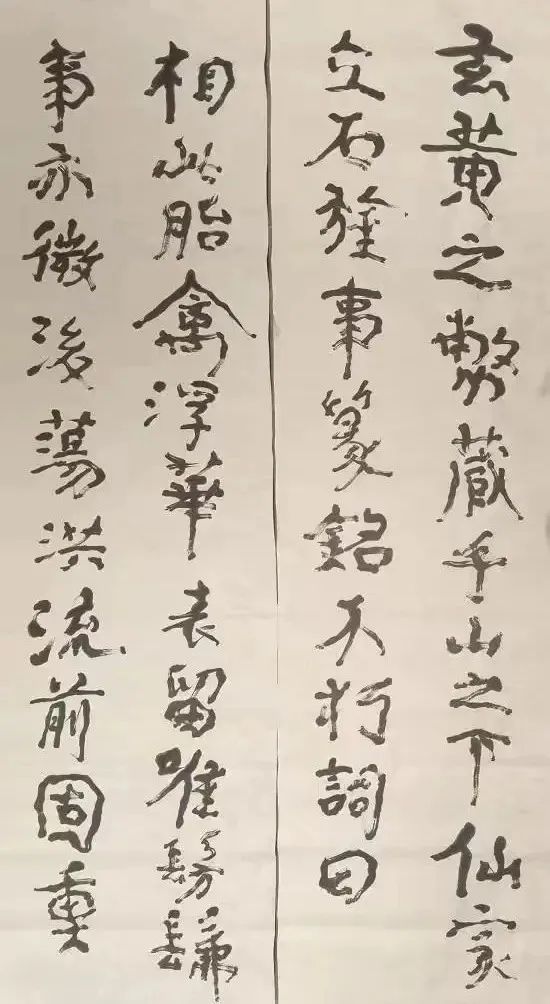 玄黄之幣藏乎山之下仙家
立石旌事篆銘不朽詞曰
相此胎禽浮華表留唯髣髴
事亦微後蕩洪流前固重